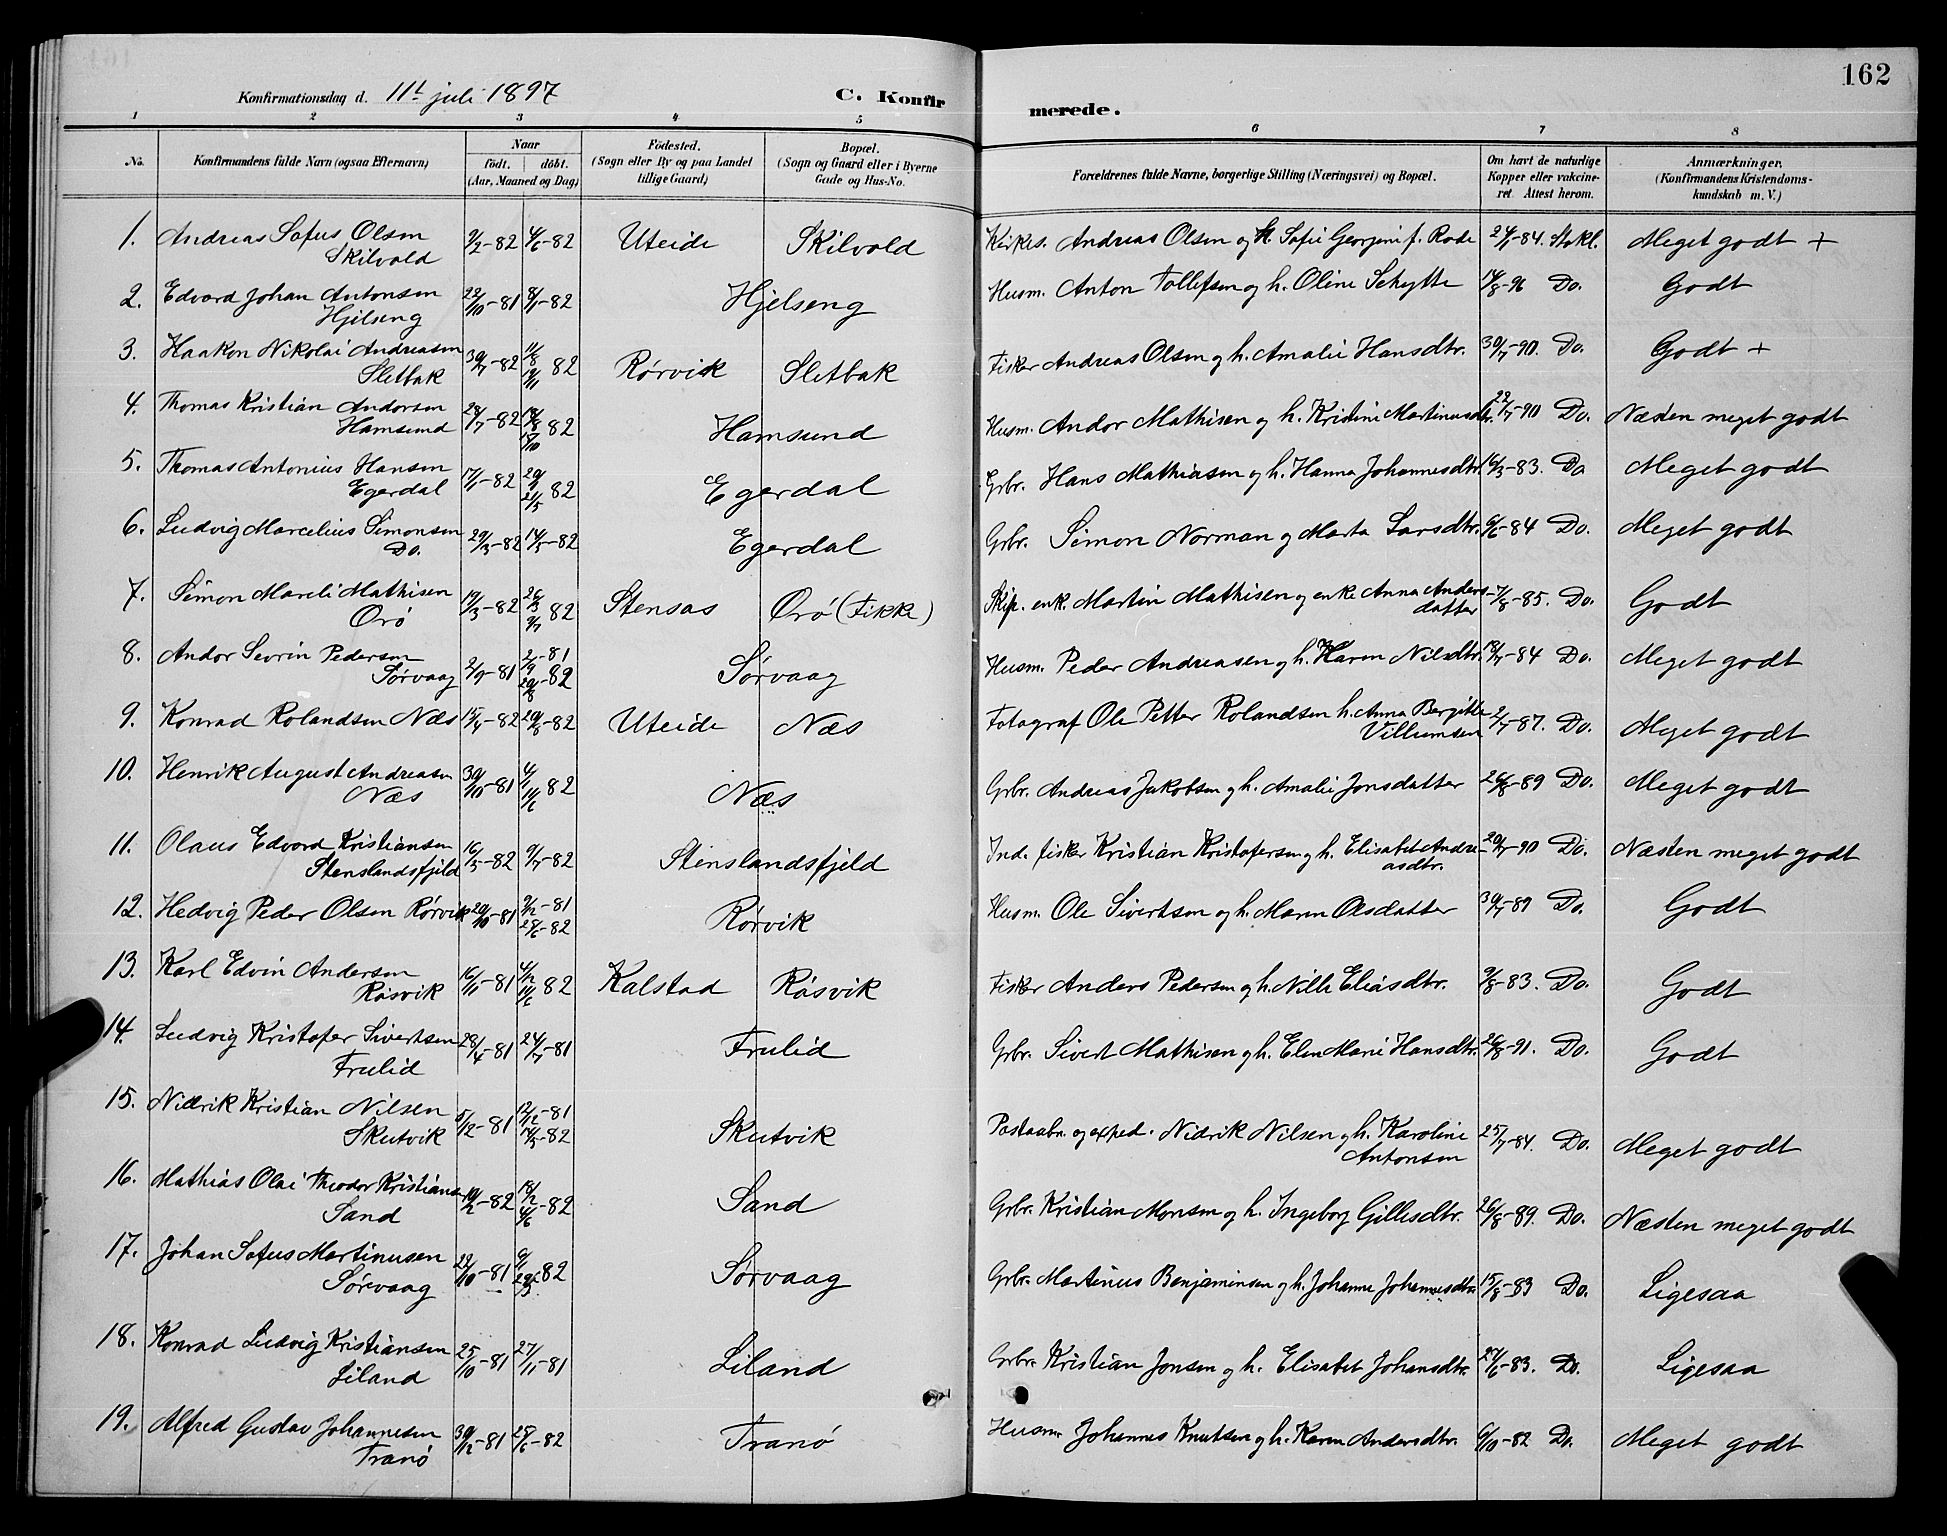 162
Konfirmationsdag d. 11t juli 1897 C. Konfirmerede.
1 2 3 4 5 6 7 8
No. Konfirmandens fulde Navn (ogsaa Efternavn) Naar født. døbt. (Aar, Maaned og Dag) Födested. (Sogn eller By og paa Landet tillige Gaard) Bopæl. (Sogn og Gaard eller i Byerne Gade og Hus-No. Forældrenes fulde Navne, borgerlige Stilling (Næringsvei) og Bopæl. Om havt de naturlige Kopper eller vakcineret. Attest herom. Anmærkninger. (Konfirmandens Kristendomskundskab m. V.)
1. Andreas Sofus Olsen 9/2-82 4/6-82 Uteide Skilvold Andreas Olsen og Sofie Georgine f. Rode Meget godt +
Skilvold
2. Edvard Johan Antonsen 22/10-81 8/1-82 Hjelseng Husm. Anton Tollefsen og h. Oline Schytte 14/8-96 Do. Godt
Hjelseng
3. Haakon Nikolai Andreasen 30/7-82 11/8 82 Rørvik Sletbak Fisker Andreas Olsen og h. Amalie Hansdtr. 30/7-90. Do. Godt +
Sletbak
4. Thomas Kristian Andorsen 28/7-82 82 Hamsund Husm. Andor Mathisen og h. Kristine Martinusdtr. 22/7-90 Do. Næsten meget godt
Hamsund
5. Thomas Antonius Hansen 17/1-82 21/5 82 Egerdal Grbr. Hans Mathiasen og h. Hanna Johannesdtr. 16/3-83. Do Meget godt
Egerdal
6. Ludvig Marcelius Simonsen 29/3-82 14/5-82 Egerdal Grbr. Simon Norman og Marta Larsdtr. 6/6-84 Do. Meget godt
Do.
7. Simon Mareli Mathisen 19/3-82 26/3 9/7 82 Stensas Orø (Fikke) Skip. enk. Martin Mathisen og enke Anna Andersdatter 7/8-85. Do. Godt
Orø
8. Andor Sevrin Pedersen 2/9-81 2/9-81 20/8-82 Sørvaag Husm. Peder Andreasen og h. Karen Nilsdtr. -84 Do. Meget godt
Sørvaag
9. Konrad Rolandsen Næs 15/4-82 20/8-82 Uteide Næs Fotograf Ole Petter Rolandsen h. Anna Bergitte Villumsen 2/7-87. Do. Meget godt
10. Henrik August Andreasen 30/10-81 4/1 11/6 82 Næs Grbr. Andreas Jakobsen og h. Amalie Jonsdatter 26/8-89 Do. Meget godt
Næs
11. Olaus Edvard Kristiansen 16/5-82 9/7-82 Stenslandsfjeld Ind. fisker Kristian Kristofersen og h. Elisabet Andreasdtr. 20/7-90 Do. Næsten meget godt
Stenslandsfjeld
12. Hedvig Peder Olsen Rørvik 20/10-81 9/12-81 25/6-82 Rørvik Husm. Ole Sivertsen og h. Maren Olsdatter 30/7-89 Do. Godt
13. Karl Edvin Andersen 16/11-81 4/12 11/6 82 Kalstad Røsvik Fisker Anders Pedersen og h. Nille Eliasdtr. 9/8-83. Do. Godt
Røsvik
14. Ludvig Kristofer Sivertsen 28/4-81 24/7-81 Frulid Grbr. Sivert Mathisen og h. Elen Marie Hansdtr. 26/8-91. Do. Godt
Frulid
15. Nidrik Kristian Nilsen 5/12-81 12/12-81 14/5-82 Skutvik Postaabn. og exped. Nidrik Nilsen og h. Karoline Antonsen 25/7-84. Do. Meget godt
Skutvik
16. Mathias Olai Theodor Kristiansen 10/2-82 18/2 4/6-82 Sand Grbr. Kristian Monsen og h. Ingeborg Gillesdtr. 26/8-89. Do. Næsten meget godt
Sand
17. Johan Sofus Martinusen 22/10-81 82 Sørvaag Grbr. Martinus Benjaminsen og h. Johanna Johannesdtr. 15/8-83 Do. Ligesaa
Sørvaag
18. Konrad Ludvig Kristiansen 25/10-81 27/11-81 Liland Grbr. Kristian Jonsen og h. Elisabet Johansdtr. 27/6-83. Do. Ligesaa
Liland
19. Alfred Gustav Johannesen 30/12-81 25/6-82 Tranø Husm. Johannes Knutsen og h. Karen Andersdtr. 6/10-82 Do. Meget godt
Tranø